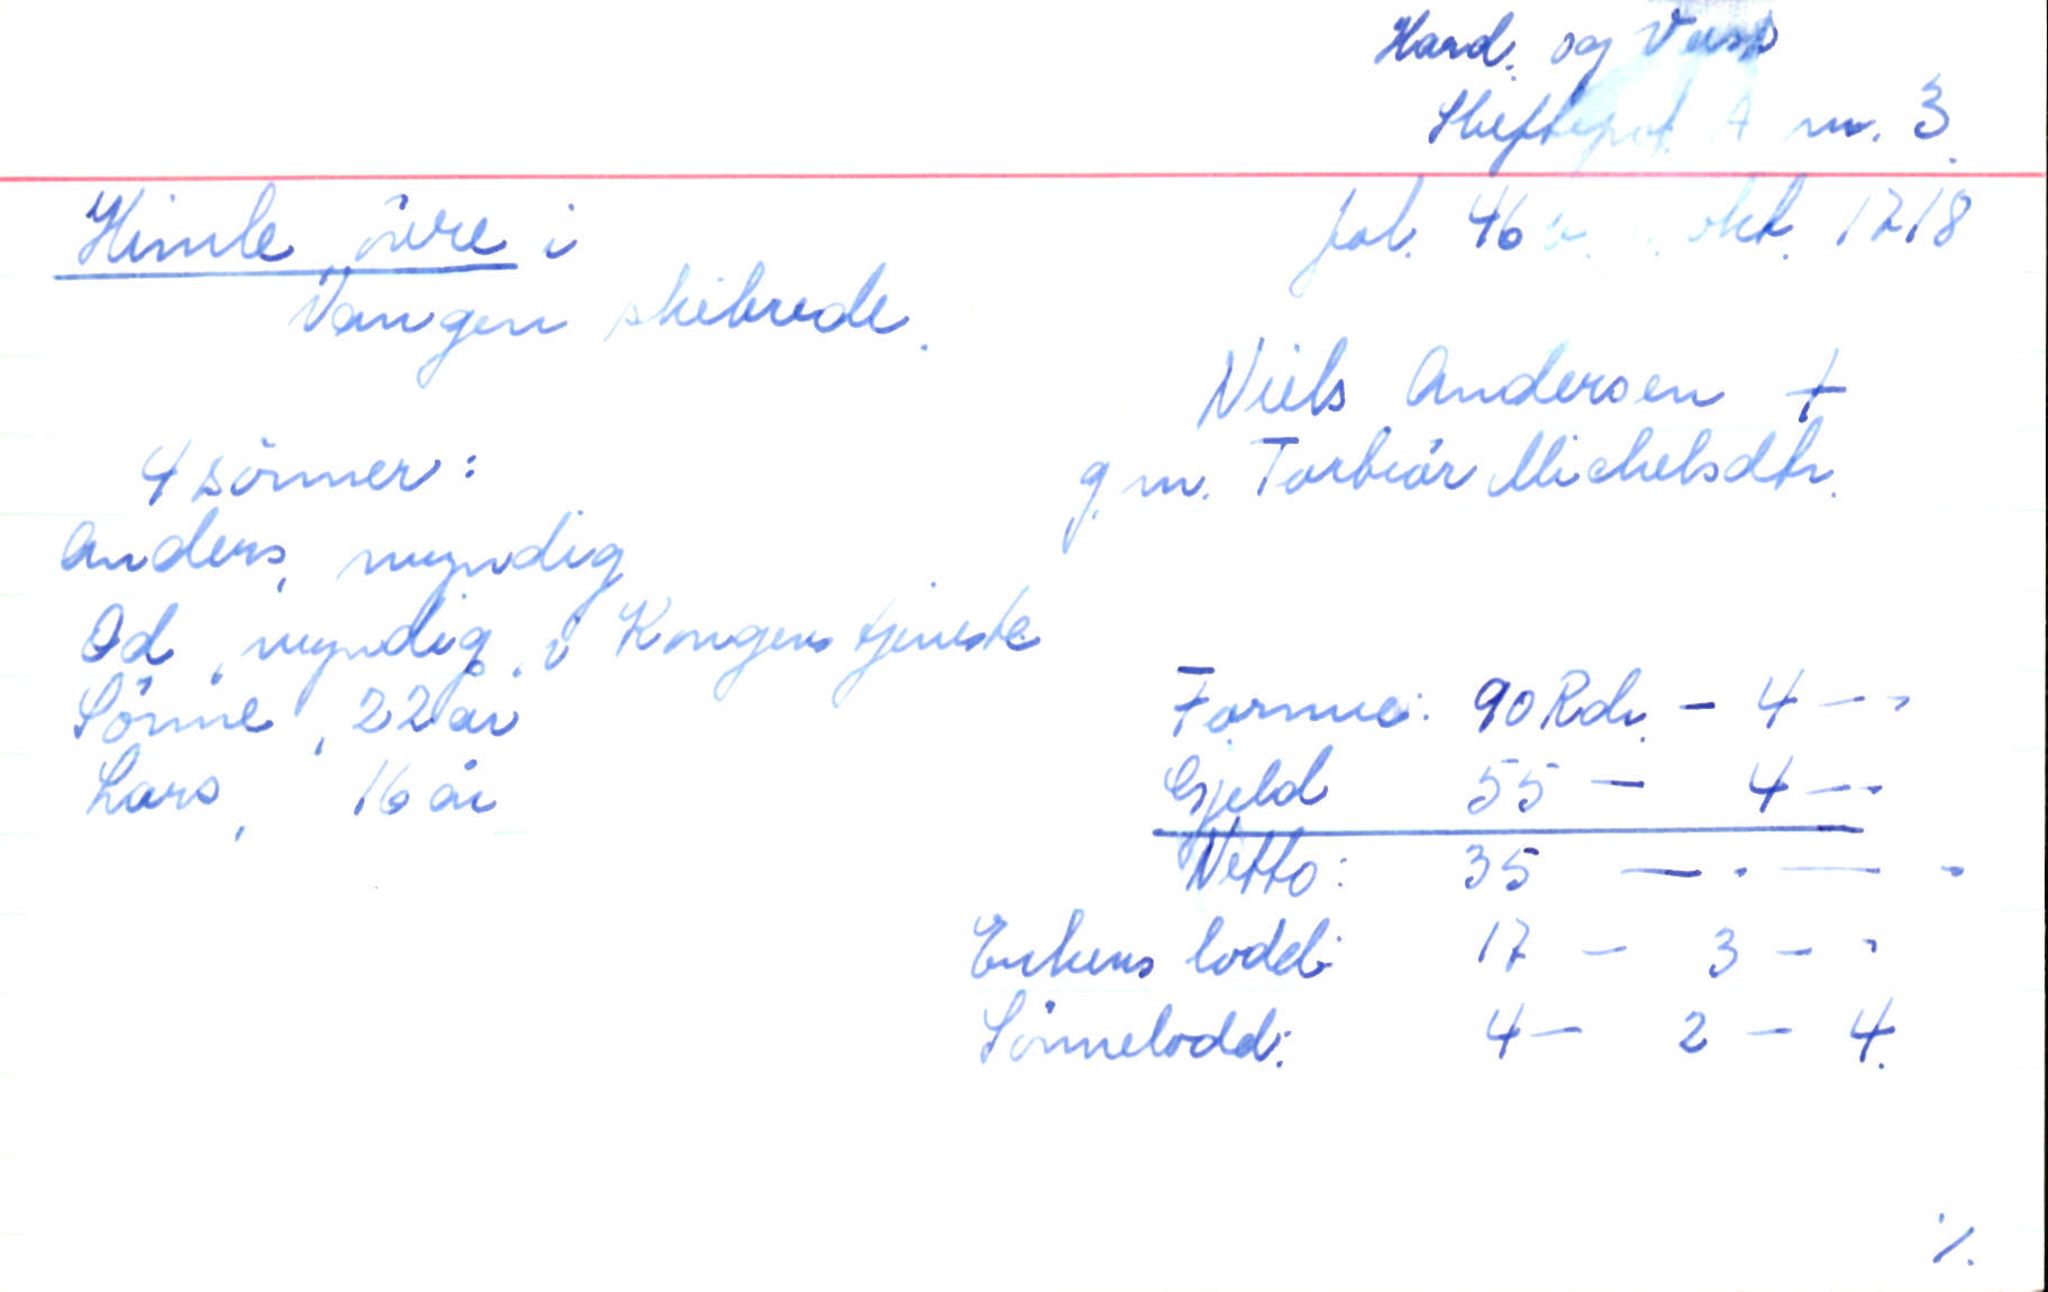 Hard. og Voss
Skifteprot. A nr. 3.
Himle övre i
fol. 46 okt. 1718
Vangen skibrede.
Niels Andersen †
g.m. Torbiör Michelsdtr.
4 sönner:
Anders, myndig
Od, myndig, i Kongens tjeneste
Sönne, 22 år
Lars, 16 år
Formue: 90 Rdr. - 4 - -
Gjeld 55 - 4 - -
Netto: 35 - . - .
Enkens lodd: 17 - 3 - -
Sönnelodd: 4 - 2 - 4.
./.